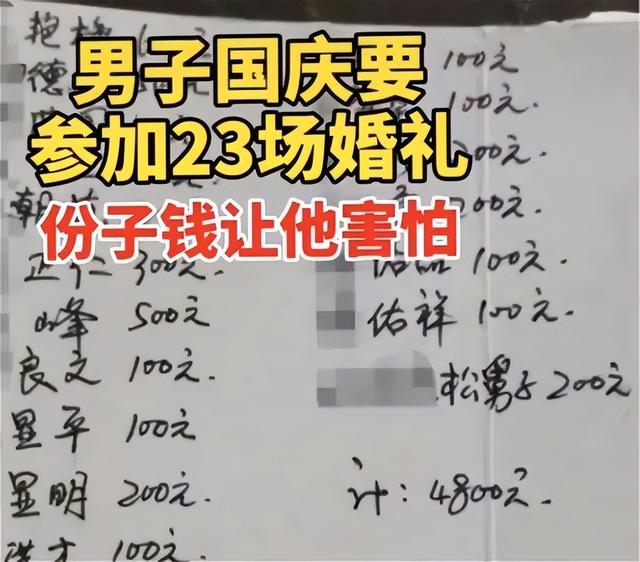 男子国庆要
参加23场婚礼
份子钱让他害怕
艳
德
正仁 300元.
山峰 500元
良文 100元.
显平 100元
显明 200元.
100元.
100元
100元.
200元.
200元.
100元.
佑祥 100元.
松舅子 200元
计：4800元.